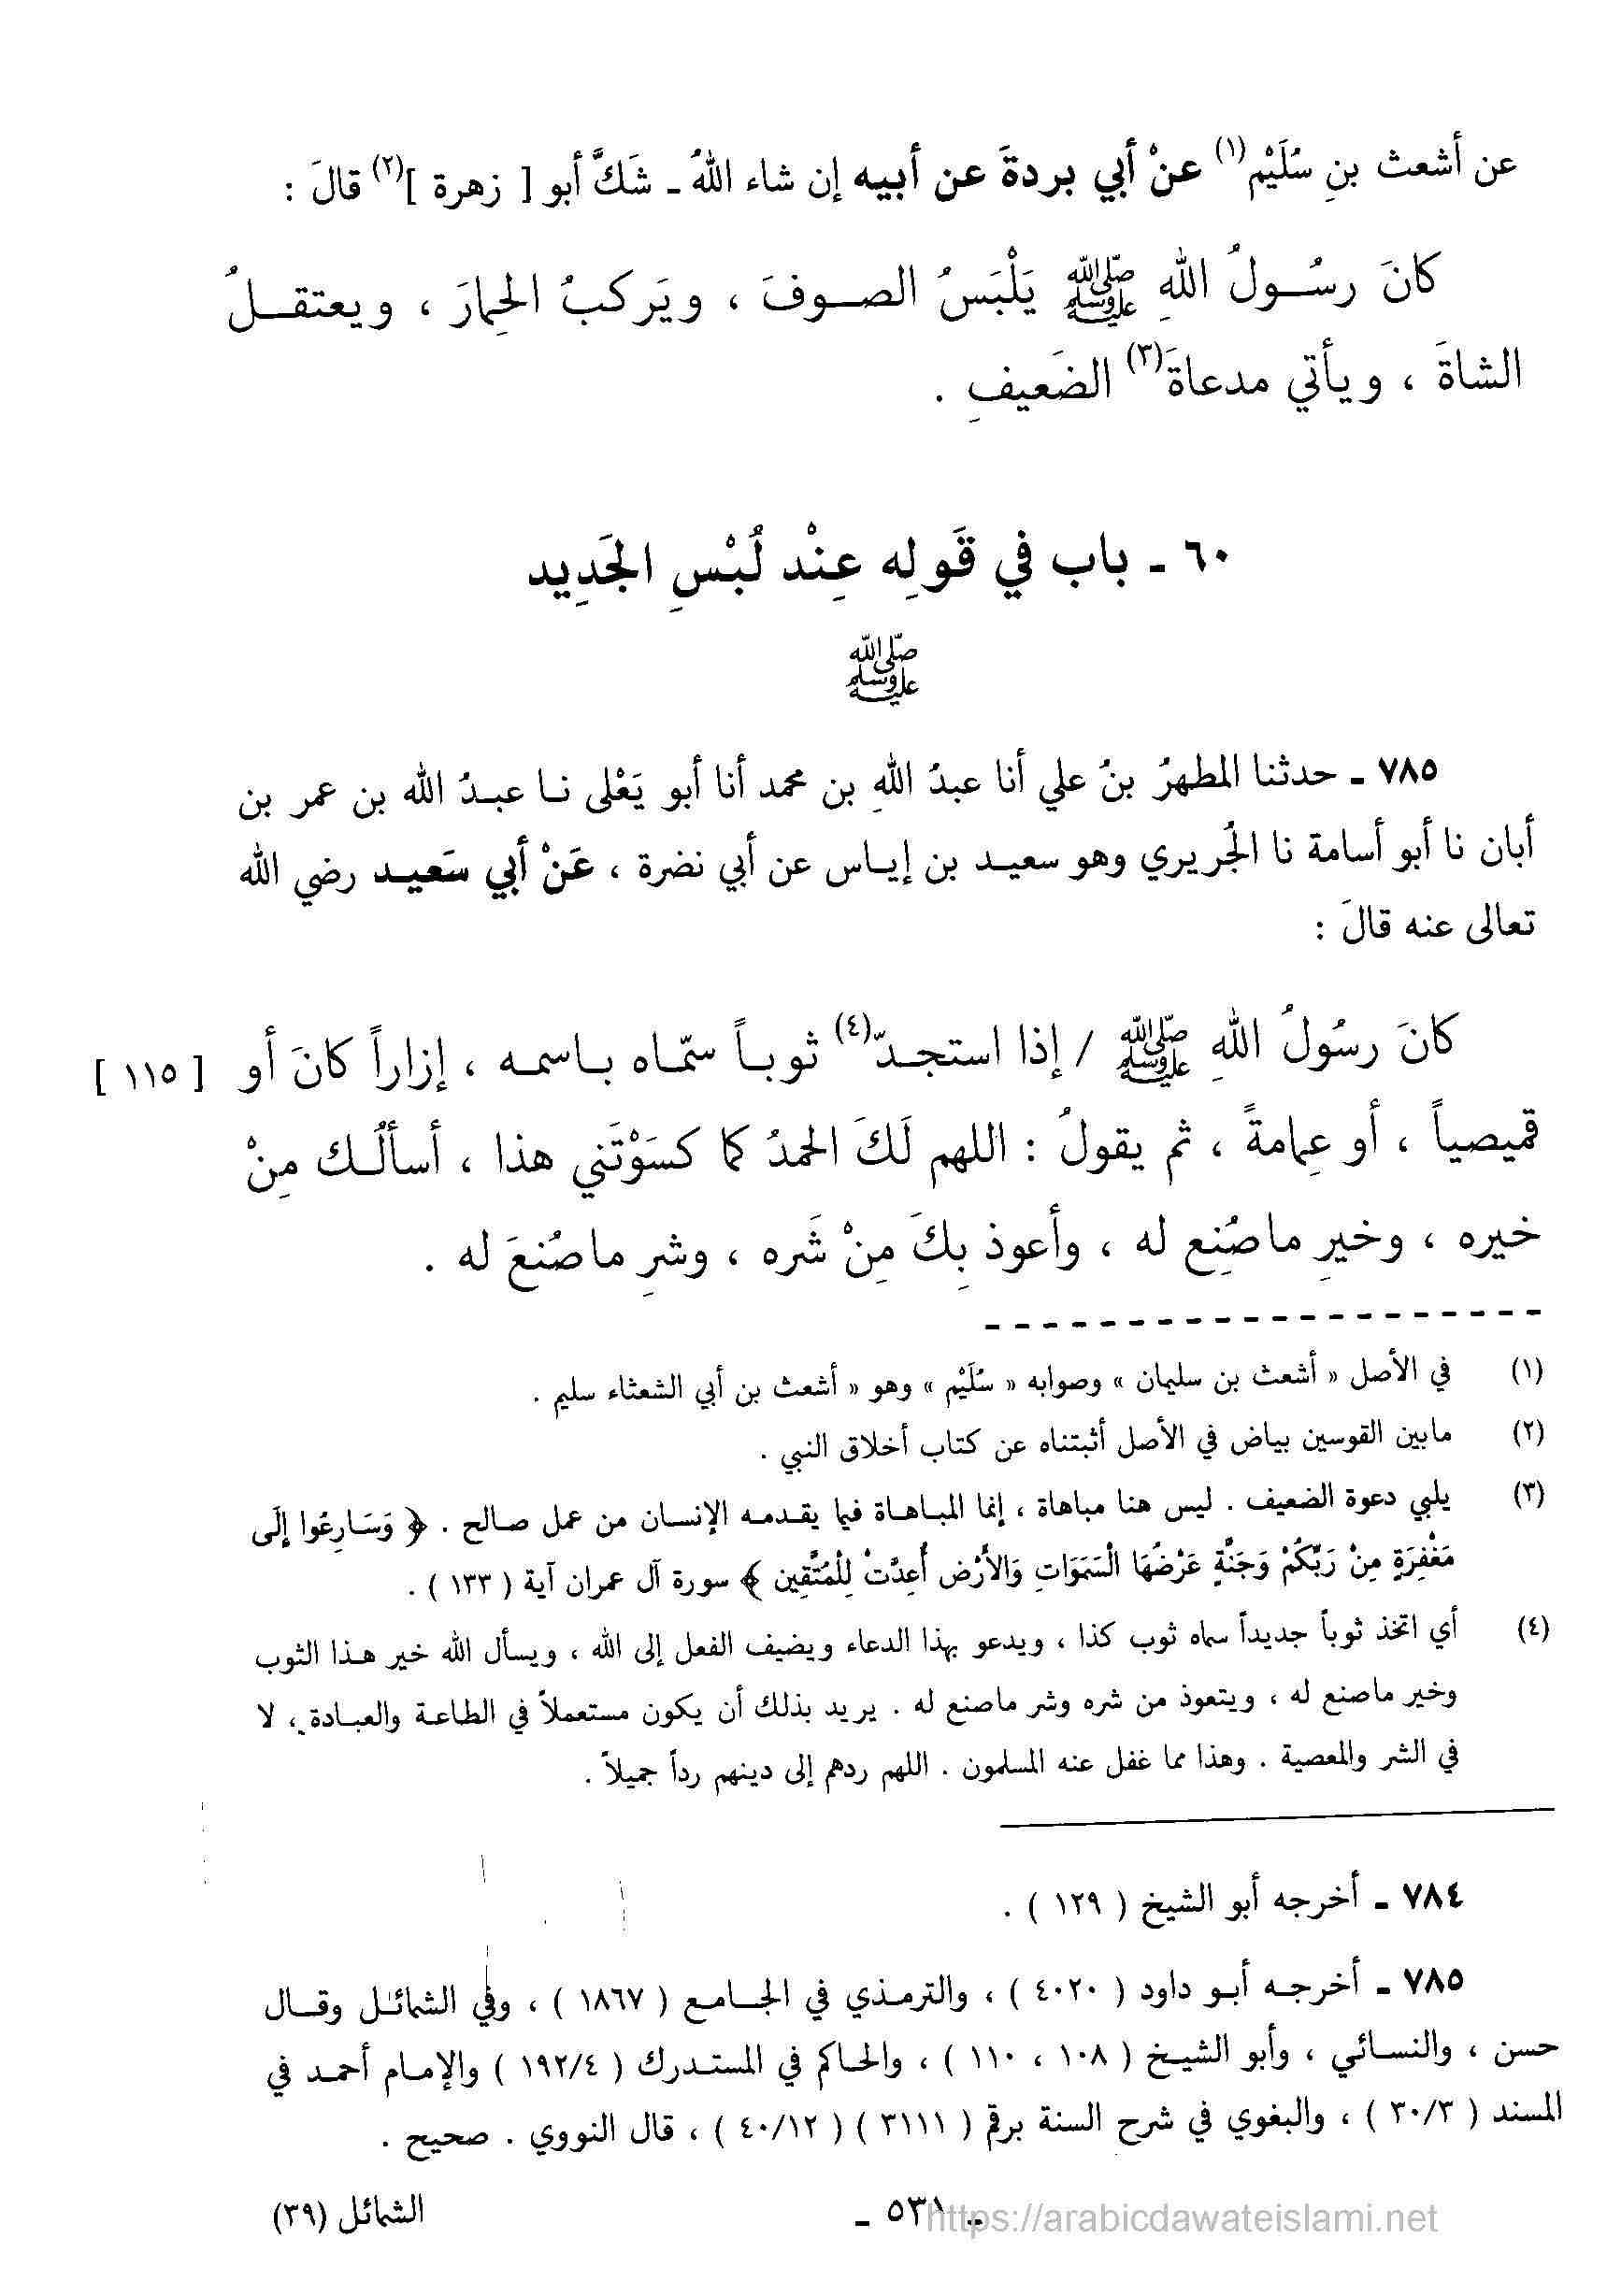 عن أشعث بنِ سُلَيْم(١) عنْ أبي بردةَ عن أبيه إن شاء اللهُ ـ شَكَّ أبو [ زهرة ](٢) قالَ :
كانَ رسُولُ اللهِ ﷺ يَلْبَسُ الصوفَ ، ويَركبُ الحِمارَ ، ويعتقلُ
الشاةَ ، ويأتي مدعاةَ(٣) الضَعيفِ .
٦٠ ـ باب في قَولِه عِنْد لُبْسِ الجَدِيد
ﷺ
٧٨٥ ـ حدثنا المطهرُ بنُ علي أنا عبدُ اللهِ بن محمد أنا أبو يَعْلى نا عبدُ الله بن عمر بن
أبان نا أبو أسامة نا الجُريري وهو سعيد بن إياس عن أبي نضرة ، عَنْ أبي سَعيد رضي الله
تعالى عنه قالَ :
كانَ رسُولُ اللهِ ﷺ / إذا استجدّ(٤) ثوباً سمّاه باسمه ، إزاراً كانَ أو [ ١١٥ ]
قميصياً ، أو عِمامةً ، ثم يقولُ : اللهم لَكَ الحمدُ كما كسَوْتَني هذا ، أسألُك مِنْ
خيره ، وخيرِ ماصُنِع له ، وأعوذ بِكَ مِنْ شَره ، وشرِ ماصُنعَ له .
(١) في الأصل « أشعث بن سليمان » وصوابه « سُلَيْم » وهو « أشعث بن أبي الشعثاء سليم .
(٢) مابين القوسين بياض في الأصل أثبتناه عن كتاب أخلاق النبي .
(٣) يلبي دعوة الضعيف . ليس هنا مباهاة ، إنما المباهاة فيما يقدمه الإنسان من عمل صالح . ﴿ وَسَارِعُوا إلَى
مَغْفِرَةٍ مِنْ رَبِّكُمْ وَجَنَّةٍ عَرْضُهَا الْسَمَوَاتِ وَالأَرْض أُعِدَّتْ لِلْمُتَّقِين ﴾ سورة آل عمران آية ( ١٣٣ ) .
(٤) أي اتخذ ثوباً جديداً سماه ثوب كذا ، ويدعو بهذا الدعاء ويضيف الفعل إلى الله ، ويسأل الله خير هذا الثوب
وخير ماصنع له ، ويتعوذ من شره وشر ماصنع له . يريد بذلك أن يكون مستعملاً في الطاعة والعبادة ، لا
في الشر والمعصية . وهذا مما غفل عنه المسلمون . اللهم ردهم إلى دينهم رداً جميلاً .
٧٨٤ ـ أخرجه أبو الشيخ ( ١٢٩ ) .
٧٨٥ ـ أخرجه أبو داود ( ٤٠٢٠ ) ، والترمذي في الجامع ( ١٨٦٧ ) ، وفي الشمائل وقال
حسن ، والنسائي ، وأبو الشيخ ( ١٠٨ ، ١١٠ ) ، والحاكم في المستدرك ( ١٩٢/٤ ) والإمام أحمد في
المسند ( ٣٠/٣ ) ، والبغوي في شرح السنة برقم ( ٣١١١ ) ( ٤٠/١٢ ) ، قال النووي . صحيح .
ـ ٥٣١ ـ الشمائل (٣٩)
https://arabicdawateislami.net